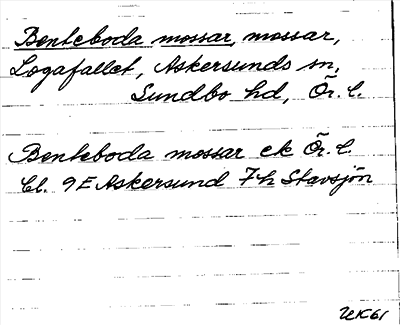 Benteboda mossar, mossar,
Logafallet, Askersunds sn,
Sundbo hd, Ör. l.
Benteboda mossar ek Ör. l.
bl. 9E Askersund 7h Stavsjön
UK61